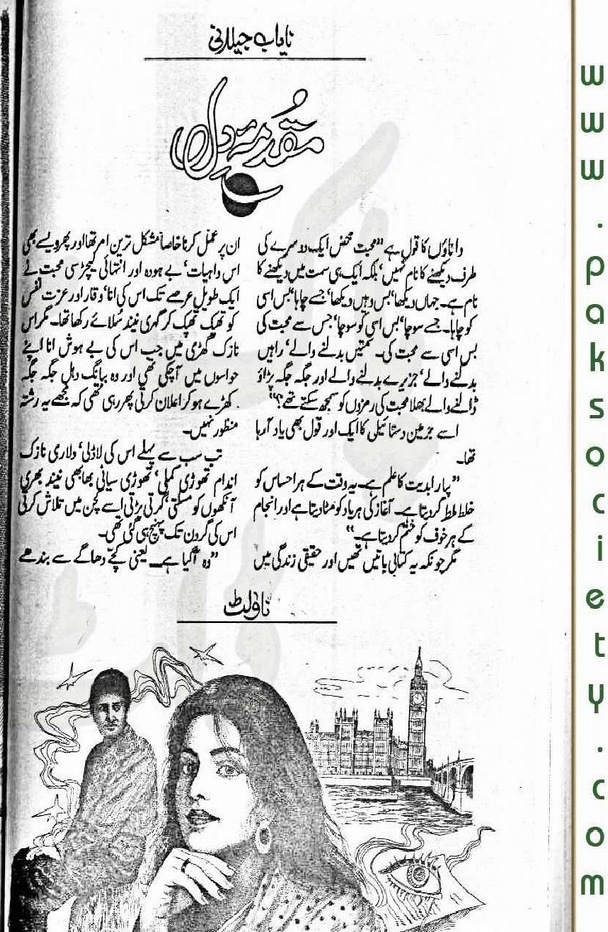 نایاب جیلانی
مقدمۂ دل
داناؤں کا قول ہے "محبت محض ایک دوسرے کی
طرف دیکھنے کا نام نہیں، بلکہ ایک ہی سمت میں دیکھنے کا
نام ہے۔ جہاں دیکھا، بس وہیں دیکھا، جسے چاہا، بس اسی
کو چاہا۔ جسے سوچا، بس اسی کو سوچا، جس سے محبت کی
بس اسی سے محبت کی۔ سمتیں بدلنے والے، راہیں
بدلنے والے، جزیرے بدلنے والے اور جگہ جگہ پڑاؤ
ڈالنے والے بھلا محبت کی رمزوں کو سمجھ سکتے تھے؟"
اسے جرمین دستائیل کا ایک اور قول بھی یاد آ رہا
تھا۔
"پیار ابدیت کا علم ہے۔ یہ وقت کے ہر احساس کو
خلط ملط کر دیتا ہے۔ آغاز کی ہر یاد کو مٹا دیتا ہے اور انجام
کے ہر خوف کو ختم کر دیتا ہے۔"
مگر چونکہ یہ کتابی باتیں تھیں اور حقیقی زندگی میں
ان پر عمل کرنا خاصا مشکل ترین امر تھا اور پھر ویسے بھی
اس واہیات، بے ہودہ اور انتہائی کیچڑ سی محبت نے
ایک طویل عرصے تک اس کی انا، وقار اور عزت نفس
کو تھپک تھپک کر گہری نیند سلائے رکھا تھا۔ مگر اس
نازک گھڑی میں جب اس کی بے ہوش انا اپنے
حواسوں میں آ چکی تھی اور وہ ببانگ دہل جگہ جگہ
کھڑے ہو کر اعلان کرتی پھر رہی تھی کہ مجھے یہ رشتہ
منظور نہیں۔
تب سب سے پہلے اس کی لاڈلی، دلاری نازک
اندام تھوڑی کملی، تھوڑی سیانی بھابھی نیند بھری
آنکھوں کو مسلتی، گرتی پڑتی اسے کچن میں تلاش کرتی
اس کی گردن تک پہنچ ہی گئی تھی۔
"وہ آ گیا ہے۔ یعنی کچے دھاگے سے بندھے
ناولٹ
www.paksociety.com